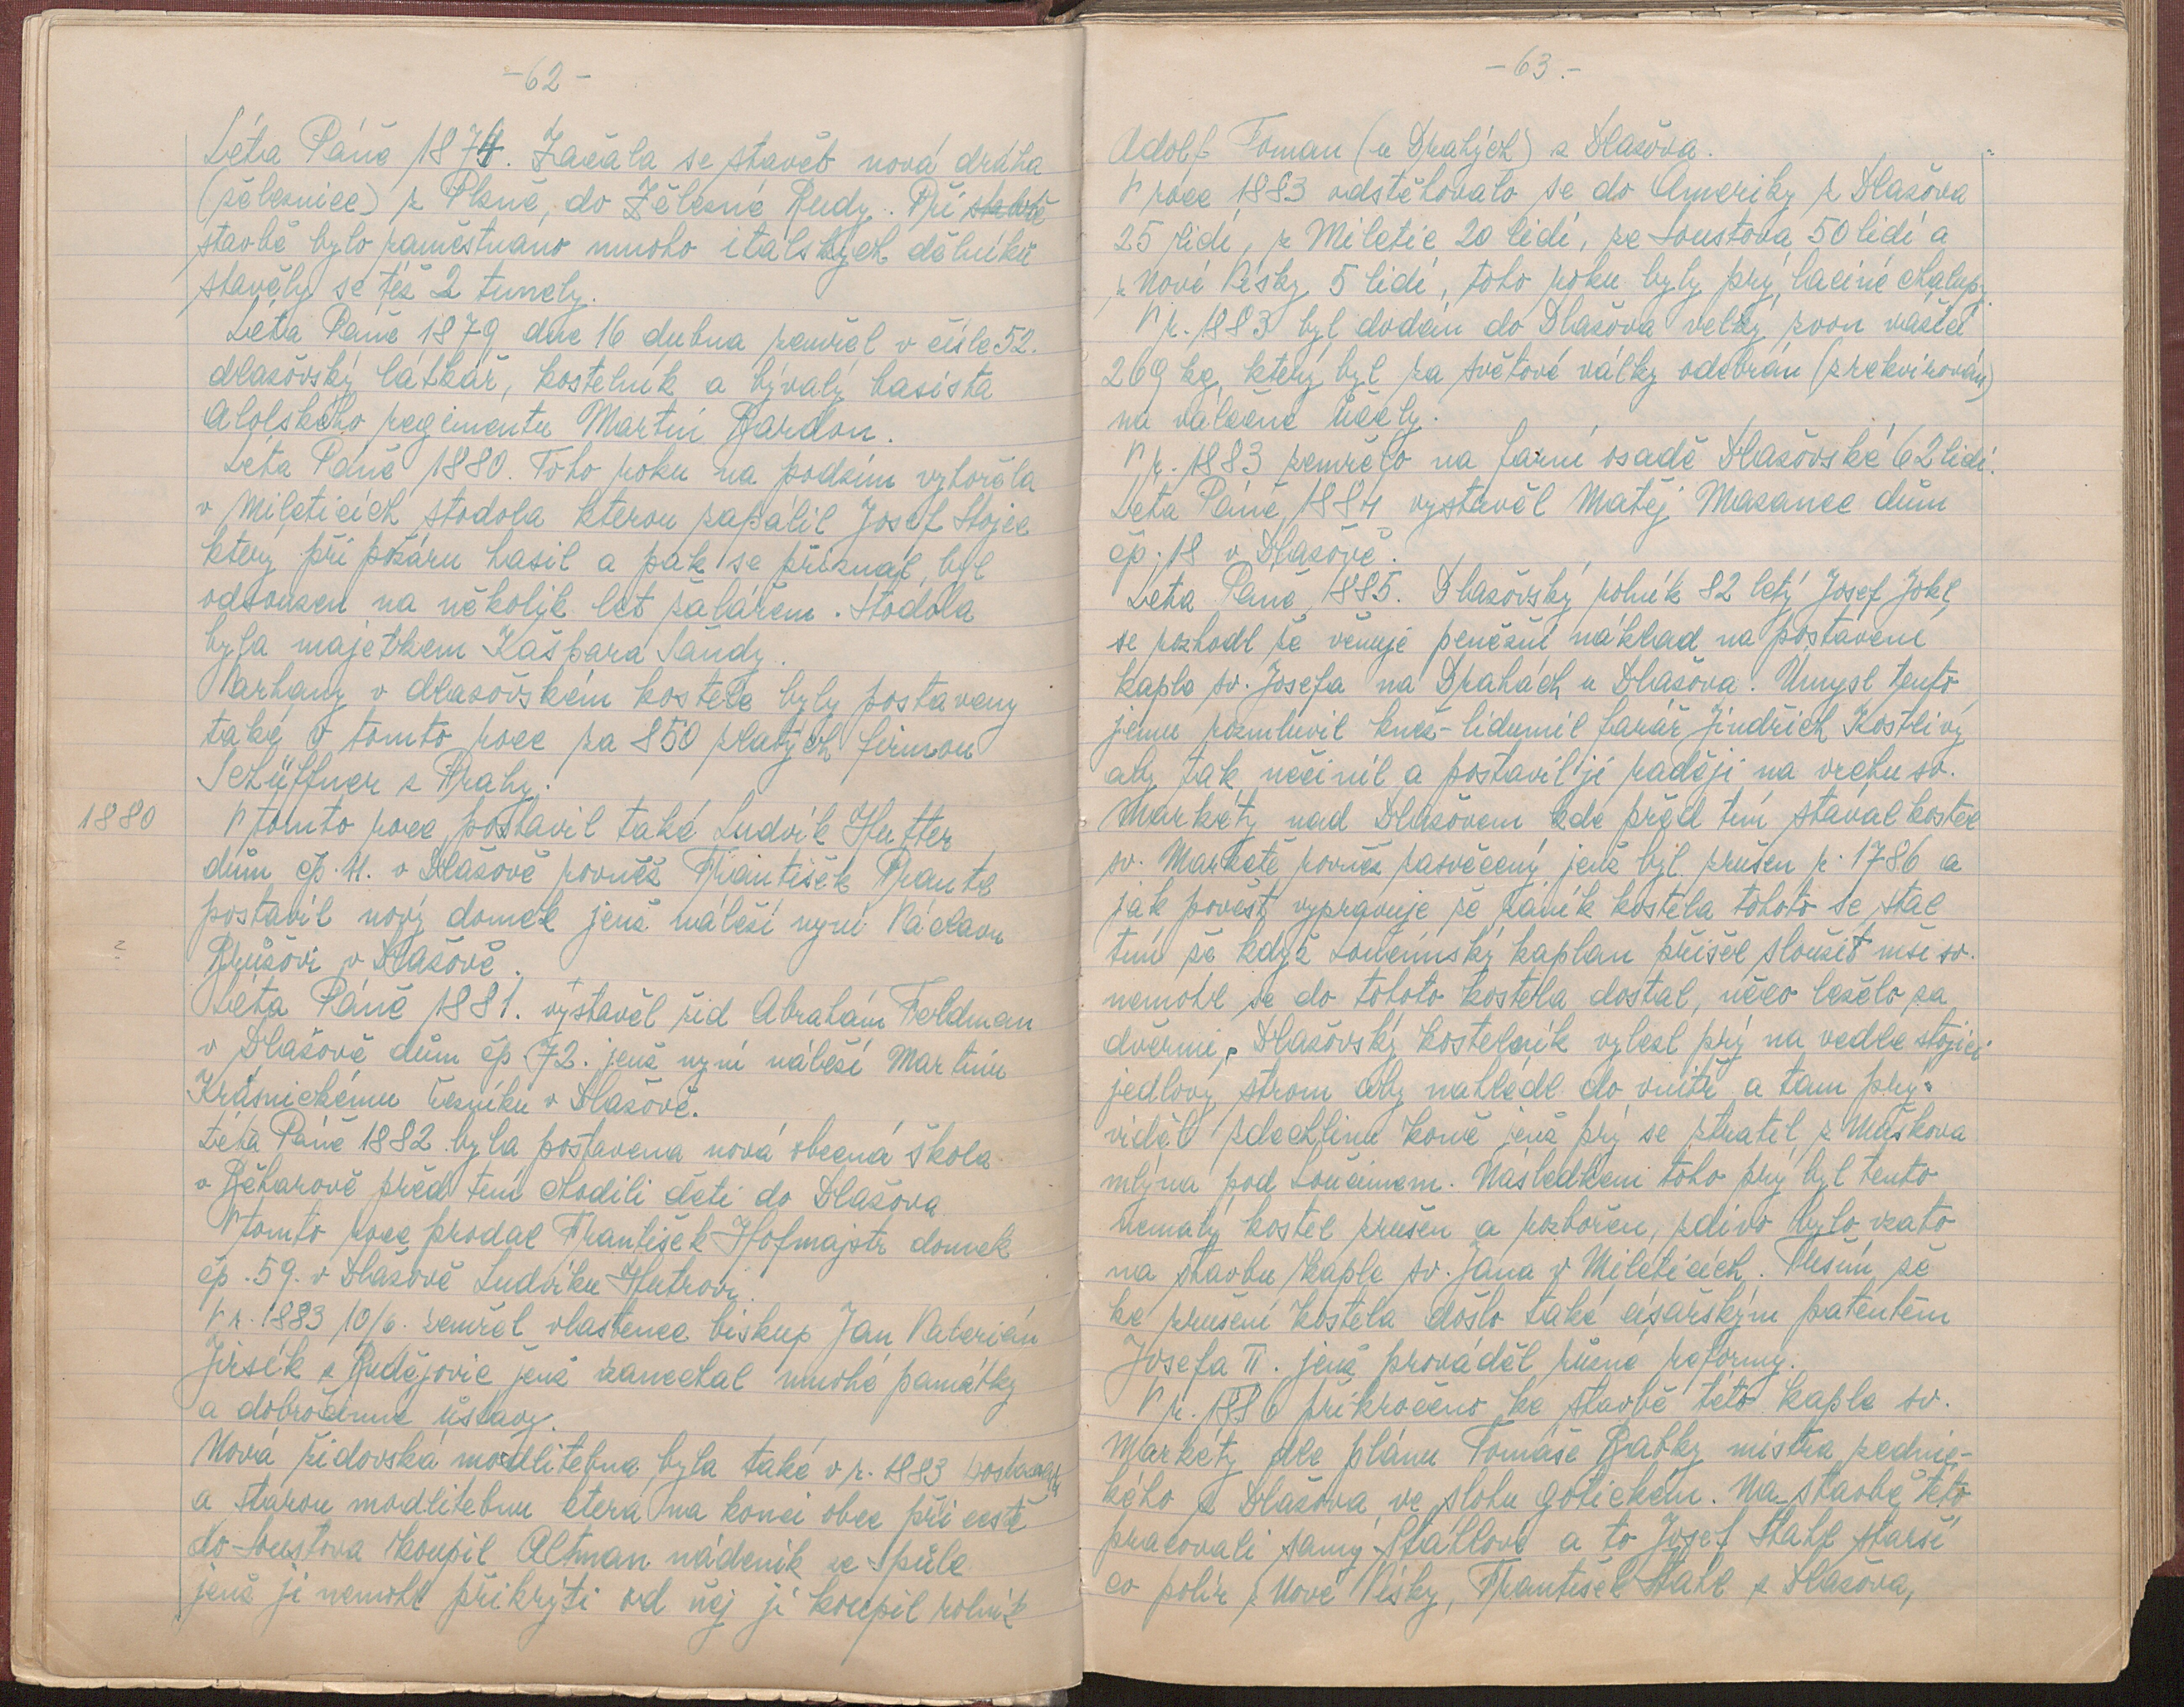 -62-
Léta Páně 1874. Začala se stavět nová dráha
(železnice) z Plzně, do Železné Rudy. Při stavbě
stavbě bylo zaměstnáno mnoho italských dělníků
stavěly se též 2 tunely.
Léta Páně 1879 dne 16 dubna zemřel v čísle 52.
dlažovský látkař, kostelník a bývalý basista
regimentu Martin Bardon.
Léta Páně 1880. Toho roku na podzim vyhořela
v Mileticích stodola kterou zapálil Josef Stojec
který při požáru hasil a pak se přiznal, byl
odsouzen na několik let žalářem. Stodola
byla majetkem Kašpara Šandy.
Varhany v dlažovském kostele byly postaveny
také v tomto roce za 850 zlatých firmou
Schüffner z Prahy.
1880
V tomto roce postavil také Ludvík Hutter
dům čp. 41. v Dlažově rovněž František Prantl
postavil nový domek jenž náleží nyní Václavu
Růžkovi v Dlažově.
Léta Páně 1881. vystavěl žid Abrahám Feldman
v Dlažově dům čp. 72. jenž nyní náleží Martinu
Krásnickému řezníku v Dlažově.
Léta Páně 1882 byla postavena nová obecná škola
v Běhařově před tím chodili děti do Dlažova
V tomto roce prodal František Hofmajstr domek
čp. 59. v Dlažově Ludvíku Hutrovi.
V r. 1883 10/6. zemřel vlastenec biskup Jan Valerián
Jirsík z Budějovic jenž zanechal mnohé památky
a dobročinné ústavy.
Nová židovská modlitebna byla také v r. 1883 postavena
a starou modlitebnu která na konci obce při cestě
do Soustova koupil Altman nádeník ze Spůle
jenž ji nemohl přikrýti od něj ji koupil rolník
-63.-
Adolf Toman (u Drahých) z Dlažova.
V roce 1883 odstěhovalo se do Ameriky z Dlažova
25 lidí, z Miletic 20 lidí, ze Soustova 50 lidí a
z Nové Vísky 5 lidí, toho roku byly prý laciné chalupy.
V r. 1883 byl dodán do Dlažova velký zvon vážící
269 kg, který byl za světové války odebrán (zrekvírován)
na válečné účely.
V r. 1883 zemřelo na farní osadě Dlažovské 62 lidí.
Léta Páně 1884 vystavěl Matěj Mazanec dům
čp. 18 v Dlažově.
Léta Páně 1885. Dlažovský rolník 82 letý Josef Jokl,
se rozhodl že věnuje peněžní náklad na postavení
kaple sv. Josefa na Drahách u Dlažova. Úmysl tento
jemu rozmluvil kněz-lidumil farář Jindřich Kostlivý
aby tak neučinil a postavil ji raději na vrchu sv.
Markéty nad Dlažovem kde před tím stával kostel
sv. Markétě rovněž zasvěcený jenž byl zrušen r. 1786 a
jak pověst vypravuje že zánik kostela tohoto se stal
tím že když Loučimský kaplan přišel sloužit mši sv.
nemohl se do tohoto kostela dostat, něco leželo za
dveřmi, Dlažovský kostelník vylezl prý na vedle stojící
jedlový strom aby nahlédl do vnitř a tam prý
viděl zdechlinu koně jenž prý se ztratil z Muškova
mlýna pod Loučimem. Následkem toho prý byl tento
nemalý kostel zrušen a rozbořen, zdivo bylo vzato
na stavbu kaple sv. Jana v Mileticích. Tuším že
ke zrušení kostela došlo také císařským patentem
Josefa II. jenž prováděl různé reformy.
V r. 1886 přikročeno ke stavbě této kaple sv.
Markéty dle plánu Tomáše Babky mistra zednic-
kého z Dlažova ve slohu gotickém. Na stavbě této
pracovali samý Stáhlové a to Josef Stahl starší
co polír z Nové Vísky, František Stahl z Dlažova,